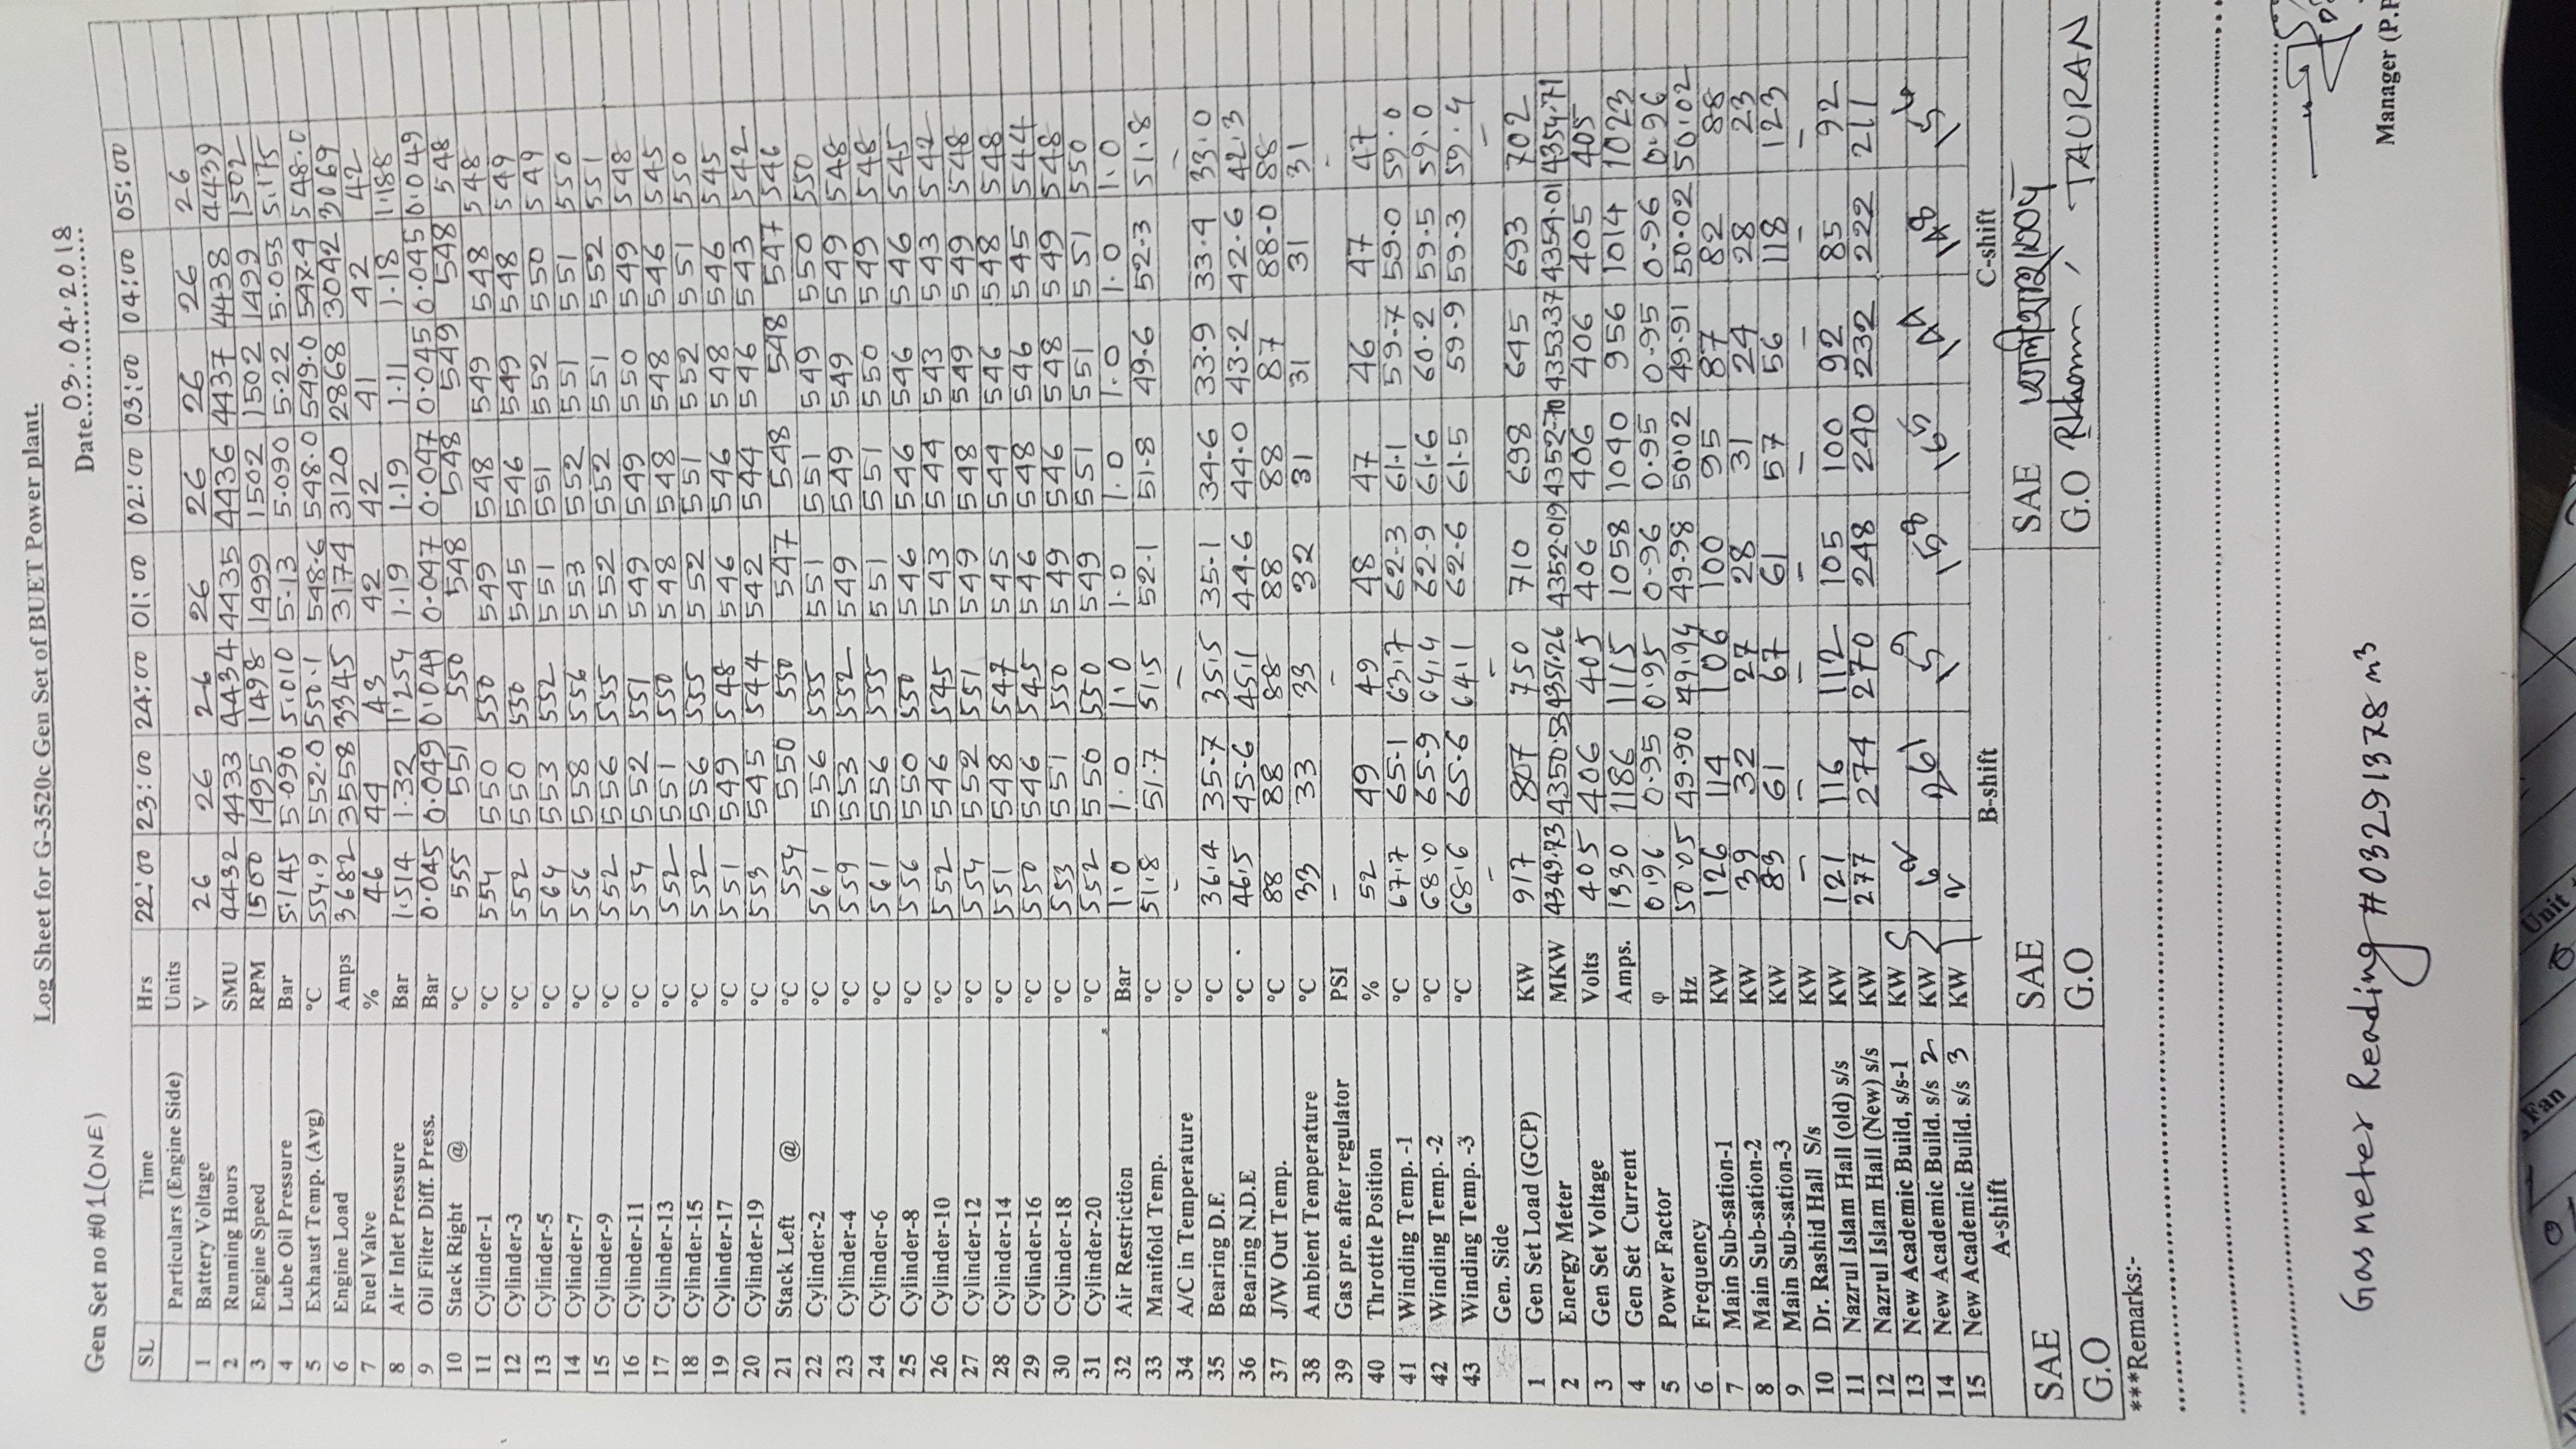 Log Sheet for G-3520c Gen Set of BUET Power plant.
Date 03.04.2018
Gen Set no #01(ONE)
SL Time Hrs 22:00 23:00 24:00 01:00 02:00 03:00 04:00 05:00
Particulars (Engine Side) Units
1 Battery Voltage V 26 26 26 26 26 26 26 26
2 Running Hours SMU 4432 4433 4434 4435 4436 4437 4438 4439
3 Engine Speed RPM 1500 1495 1498 1499 1502 1502 1499 1502
4 Lube Oil Pressure Bar 5.145 5.090 5.010 5.13 5.090 5.22 5.053 5.175
5 Exhaust Temp. (Avg) °C 554.9 552.0 550.1 548.6 548.0 549.0 548.4 548.0
6 Engine Load Amps 3682 3558 3345 3174 3120 2868 3042 3069
7 Fuel Valve % 46 44 43 42 42 41 42 42
8 Air Inlet Pressure Bar 1.514 1.32 1.254 1.19 1.19 1.11 1.18 1.188
9 Oil Filter Diff. Press. Bar 0.045 0.049 0.049 0.047 0.047 0.045 0.045 0.049
10 Stack Right @ °C 555 551 550 548 548 549 548 548
11 Cylinder-1 °C 554 550 550 549 548 549 548 548
12 Cylinder-3 °C 552 550 550 545 546 549 548 549
13 Cylinder-5 °C 564 553 552 551 551 552 550 549
14 Cylinder-7 °C 556 558 556 553 552 551 551 550
15 Cylinder-9 °C 552 556 555 552 552 551 552 551
16 Cylinder-11 °C 554 552 551 549 549 550 549 548
17 Cylinder-13 °C 552 551 550 548 548 548 546 545
18 Cylinder-15 °C 552 556 555 552 551 552 551 550
19 Cylinder-17 °C 551 549 548 546 546 548 546 545
20 Cylinder-19 °C 553 545 544 542 544 546 543 542
21 Stack Left @ °C 554 550 550 547 548 548 547 546
22 Cylinder-2 °C 561 556 555 551 551 549 550 550
23 Cylinder-4 °C 559 553 552 549 549 549 549 548
24 Cylinder-6 °C 561 556 555 551 551 550 549 548
25 Cylinder-8 °C 556 550 550 546 546 546 546 545
26 Cylinder-10 °C 552 546 545 543 544 543 543 542
27 Cylinder-12 °C 554 552 551 549 548 549 549 548
28 Cylinder-14 °C 551 548 547 545 544 546 548 548
29 Cylinder-16 °C 550 546 545 546 548 546 545 544
30 Cylinder-18 °C 553 551 550 549 546 548 549 548
31 Cylinder-20 °C 552 550 550 549 551 551 551 550
32 Air Restriction Bar 1.0 1.0 1.0 1.0 1.0 1.0 1.0 1.0
33 Manifold Temp. °C 51.8 51.7 51.5 52.1 51.8 49.6 52.3 51.8
34 A/C in Temperature °C - - -
35 Bearing D.E °C 36.4 35.7 35.5 35.1 34.6 33.9 33.4 33.0
36 Bearing N.D.E °C 46.5 45.6 45.1 44.6 44.0 43.2 42.6 42.3
37 J/W Out Temp. °C 88 88 88 88 88 87 88.0 88
38 Ambient Temperature °C 33 33 33 32 31 31 31 31
39 Gas pre. after regulator PSI - - -
40 Throttle Position % 52 49 49 48 47 46 47 47
41 Winding Temp. -1 °C 67.7 65.1 63.7 62.3 61.1 59.7 59.0 59.0
42 Winding Temp. -2 °C 68.0 65.9 64.4 62.9 61.6 60.2 59.5 59.0
43 Winding Temp. -3 °C 68.6 65.6 64.1 62.6 61.5 59.9 59.3 59.4
Gen. Side - - -
1 Gen Set Load (GCP) KW 917 807 750 710 698 645 693 702
2 Energy Meter MKW 4349.73 4350.53 4351.26 4352.019 4352.70 4353.37 4354.01 4354.71
3 Gen Set Voltage Volts 405 406 405 406 406 406 405 405
4 Gen Set Current Amps. 1330 1186 1115 1058 1040 956 1014 1023
5 Power Factor φ 0.96 0.95 0.95 0.96 0.95 0.95 0.96 0.96
6 Frequency Hz 50.05 49.90 49.94 49.98 50.02 49.91 50.02 50.02
7 Main Sub-sation-1 KW 126 114 106 100 95 87 82 88
8 Main Sub-sation-2 KW 39 32 27 28 31 24 28 23
9 Main Sub-sation-3 KW 83 61 67 61 57 56 118 123
10 Dr. Rashid Hall S/s KW - - - - - - - -
11 Nazrul Islam Hall (old) s/s KW 121 116 112 105 100 92 85 92
12 Nazrul Islam Hall (New) s/s KW 277 274 270 248 240 232 222 211
13 New Academic Build, s/s-1 KW
14 New Academic Build. s/s 2 KW 262 261 159 158 165 144 148 156
15 New Academic Build. s/s 3 KW
A-shift B-shift C-shift
SAE SAE SAE
G.O G.O G.O Rkhomm, TAURAN
***Remarks:-
Gas meter Reading #03291378 m³
Manager (P.P
Fan
Unit